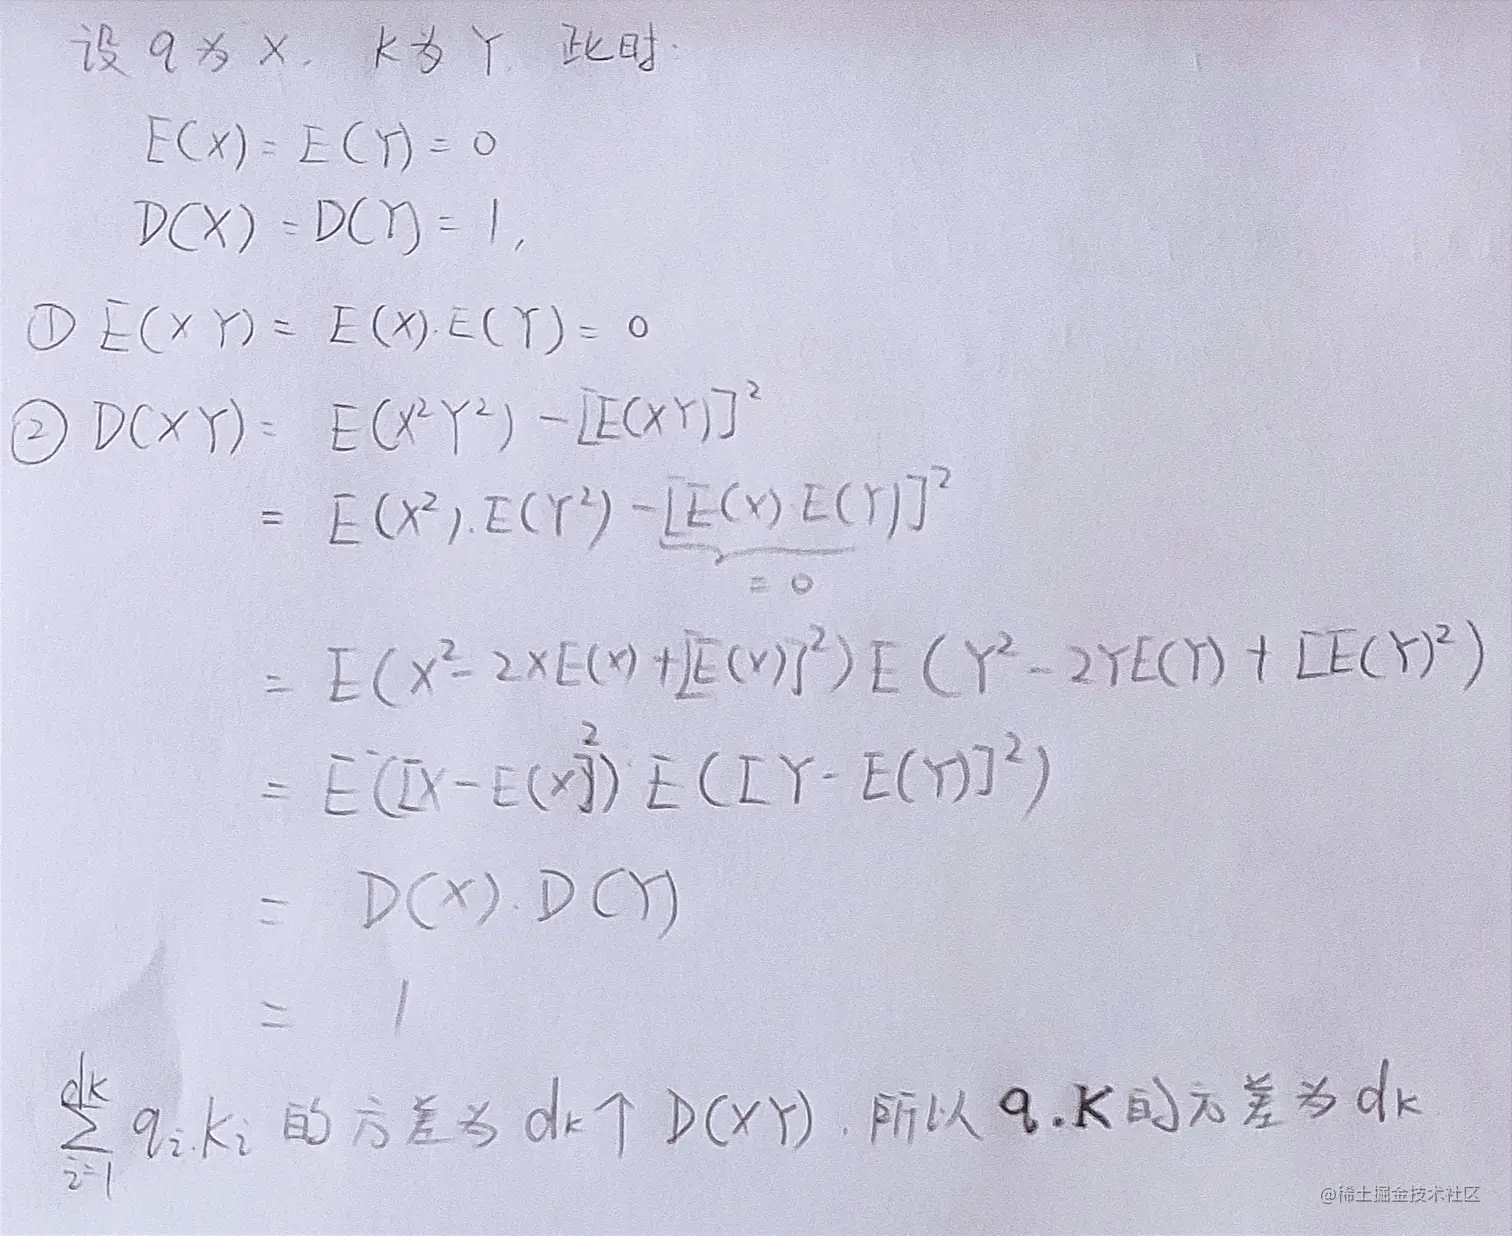 设 q 为 X. K 为 Y. 此时.
E(X) = E(Y) = 0
D(X) = D(Y) = 1,
① E(XY) = E(X)·E(Y) = 0
② D(XY) = E(X²Y²) - [E(XY)]²
= E(X²)·E(Y²) - [E(X)·E(Y)]²
= 0
= E(X² - 2XE(X) + [E(X)]²) E(Y² - 2YE(Y) + [E(Y)²)
= E([X - E(X]²) · E([Y - E(Y)]²)
= D(X)·D(Y)
= 1
∑_{i=1}^{dk} qᵢ·kᵢ 的方差为 dk个 D(XY). 所以 q.K 的方差为 dk
@稀土掘金技术社区